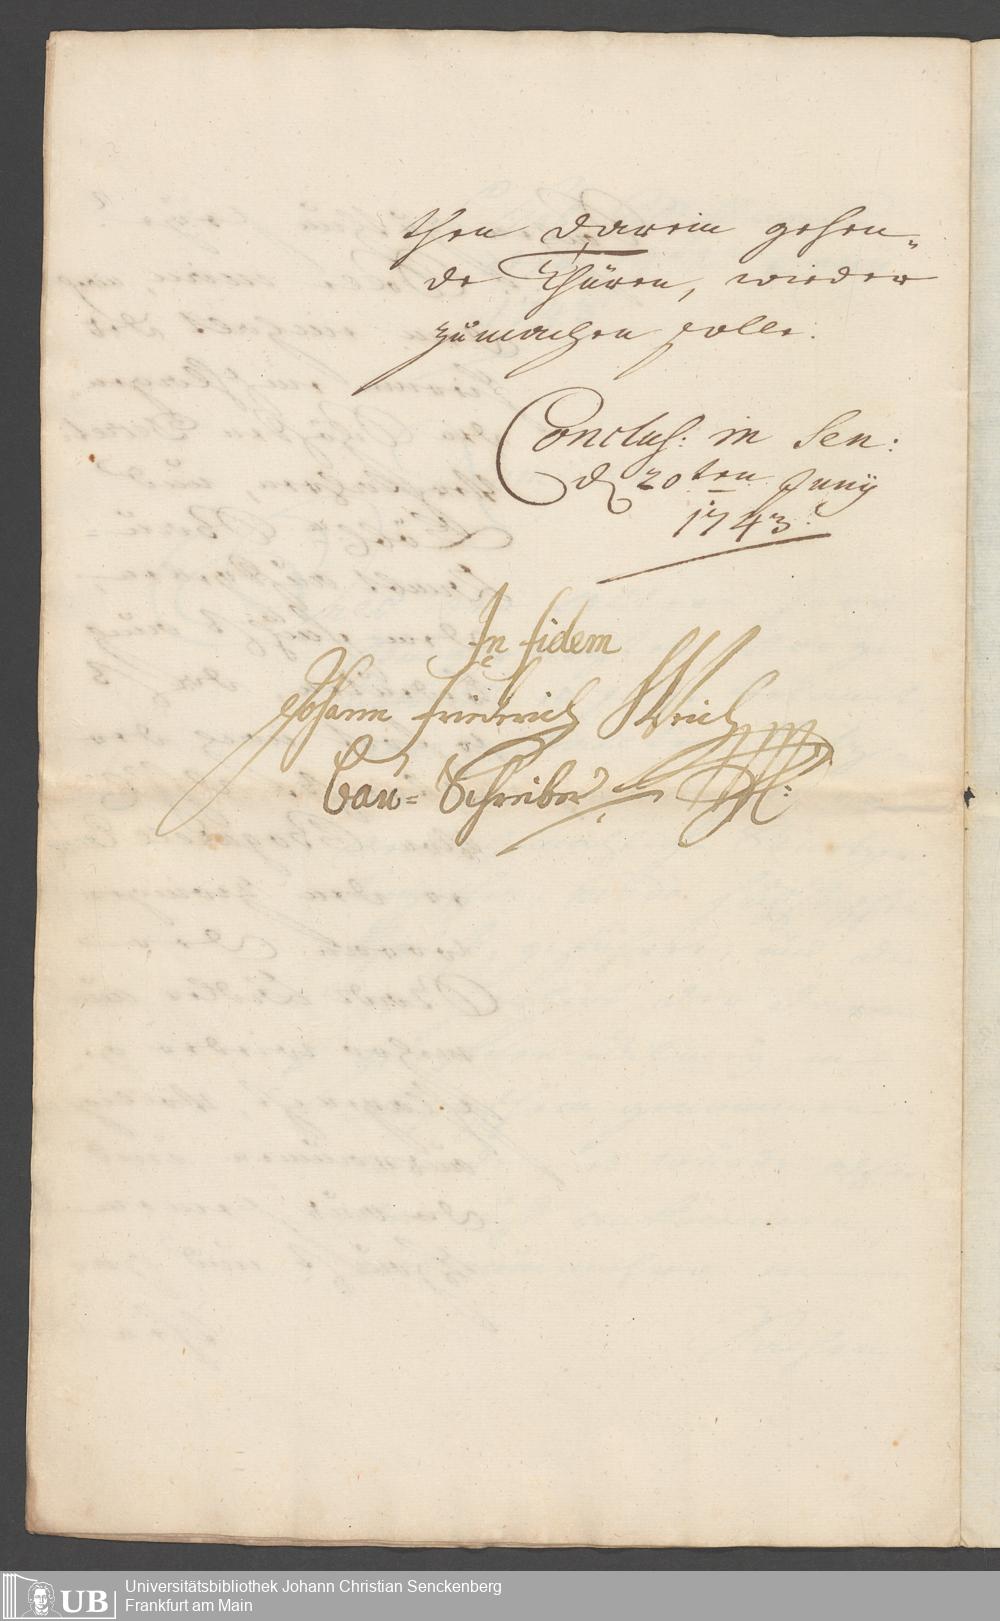 then darein gehen„
de Thüren, wieder
zumachen solle.
Conclus: in Sen:
d. 20ten Junij
1743.
In fidem
Johann Friederich Weich
Bau=Schreiber
Universitätsbibliothek Johann Christian Senckenberg
Frankfurt am Main
UB